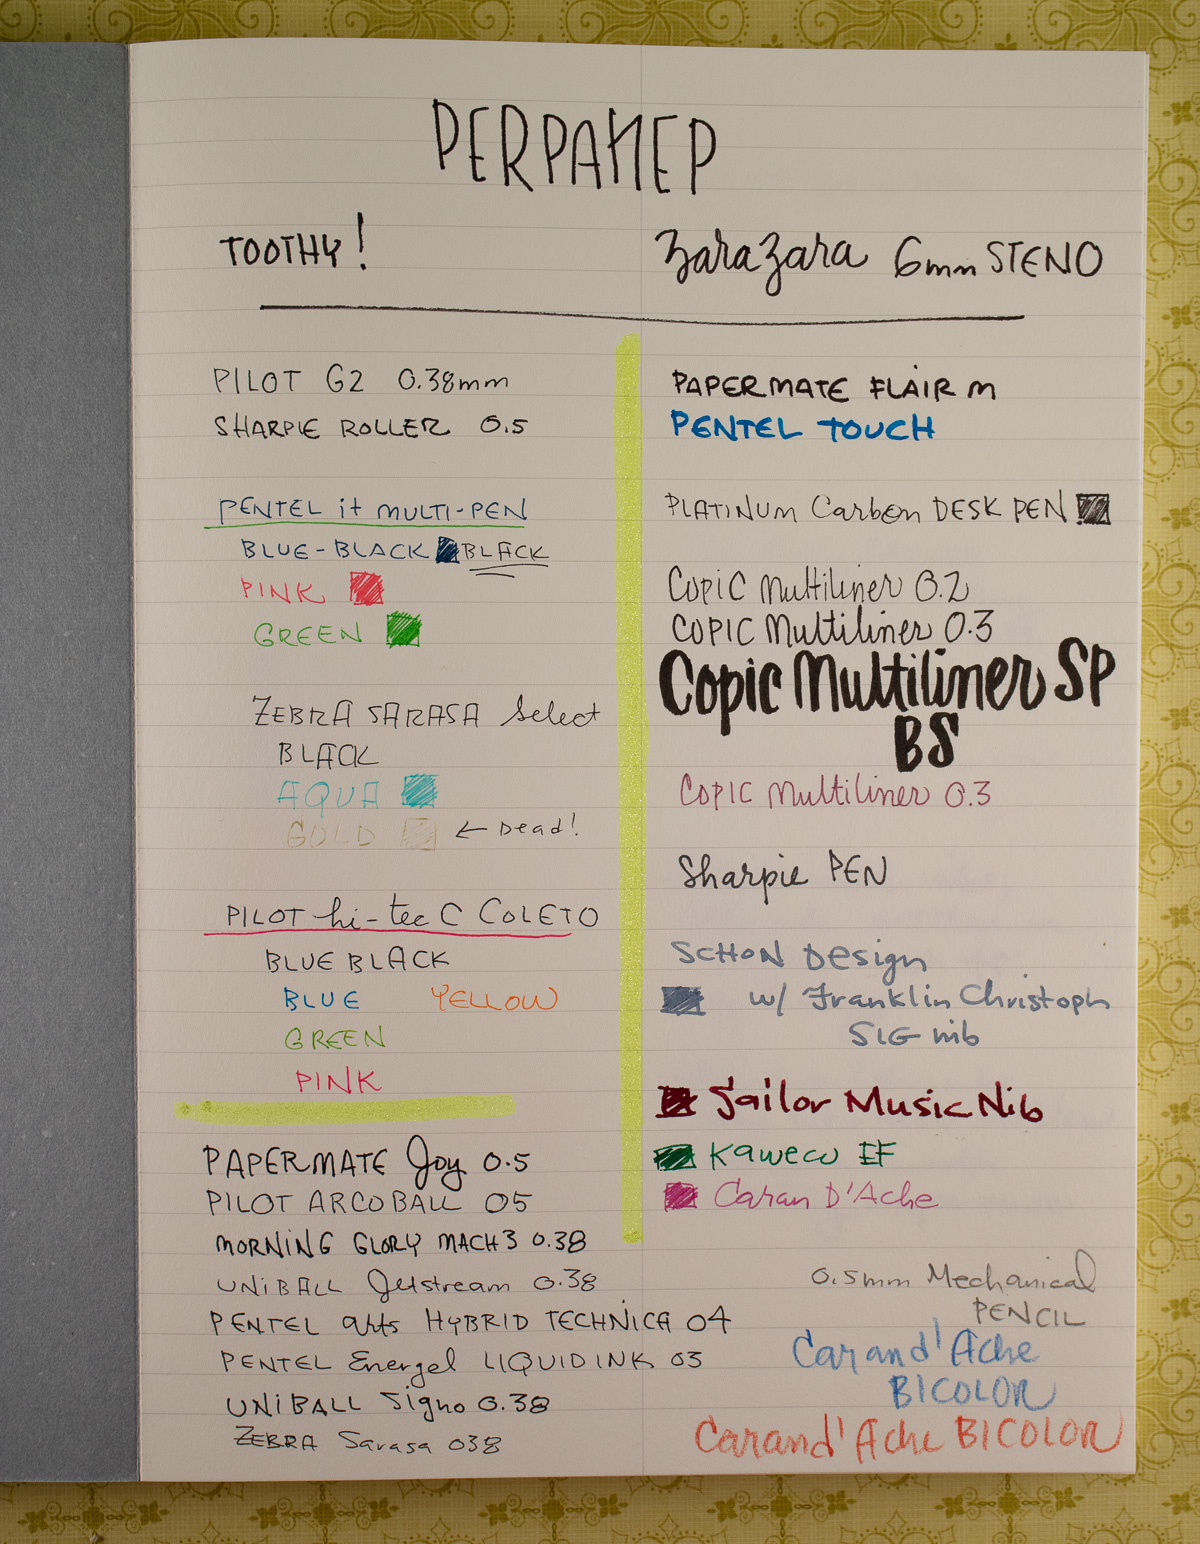 PERPANEP
TOOTHY!
ZaraZara 6mm STENO
PILOT G2 0.38mm
SHARPIE ROLLER 0.5
PENTEL it MULTI-PEN
BLUE-BLACK BLACK
PINK
GREEN
ZEBRA SARASA Select
BLACK
AQUA
GOLD ← Dead!
PILOT hi-tec C COLETO
BLUE BLACK
BLUE YELLOW
GREEN
PINK
PAPERMATE Joy 0.5
PILOT ARCOBALL 05
MORNING GLORY MACH3 0.38
UNIBALL Jetstream 0.38
PENTEL arts HYBRID TECHNICA 04
PENTEL Energel LIQUID INK 03
UNIBALL Signo 0.38
ZEBRA Sarasa 038
PAPERMATE FLAIR M
PENTEL TOUCH
PLATINUM Carbon DESK PEN
COPIC Multiliner 0.2
COPIC Multiliner 0.3
Copic Multiliner SP
BS
COPIC Multiliner 0.3
Sharpie PEN
SCHON Design
w/ Franklin Christoph
SIG nib
Sailor Music Nib
Kaweco EF
Caran D'Ache
0.5mm Mechanical
PENCIL
Carand'Ache
BICOLOR
Carand'Ache BICOLOR